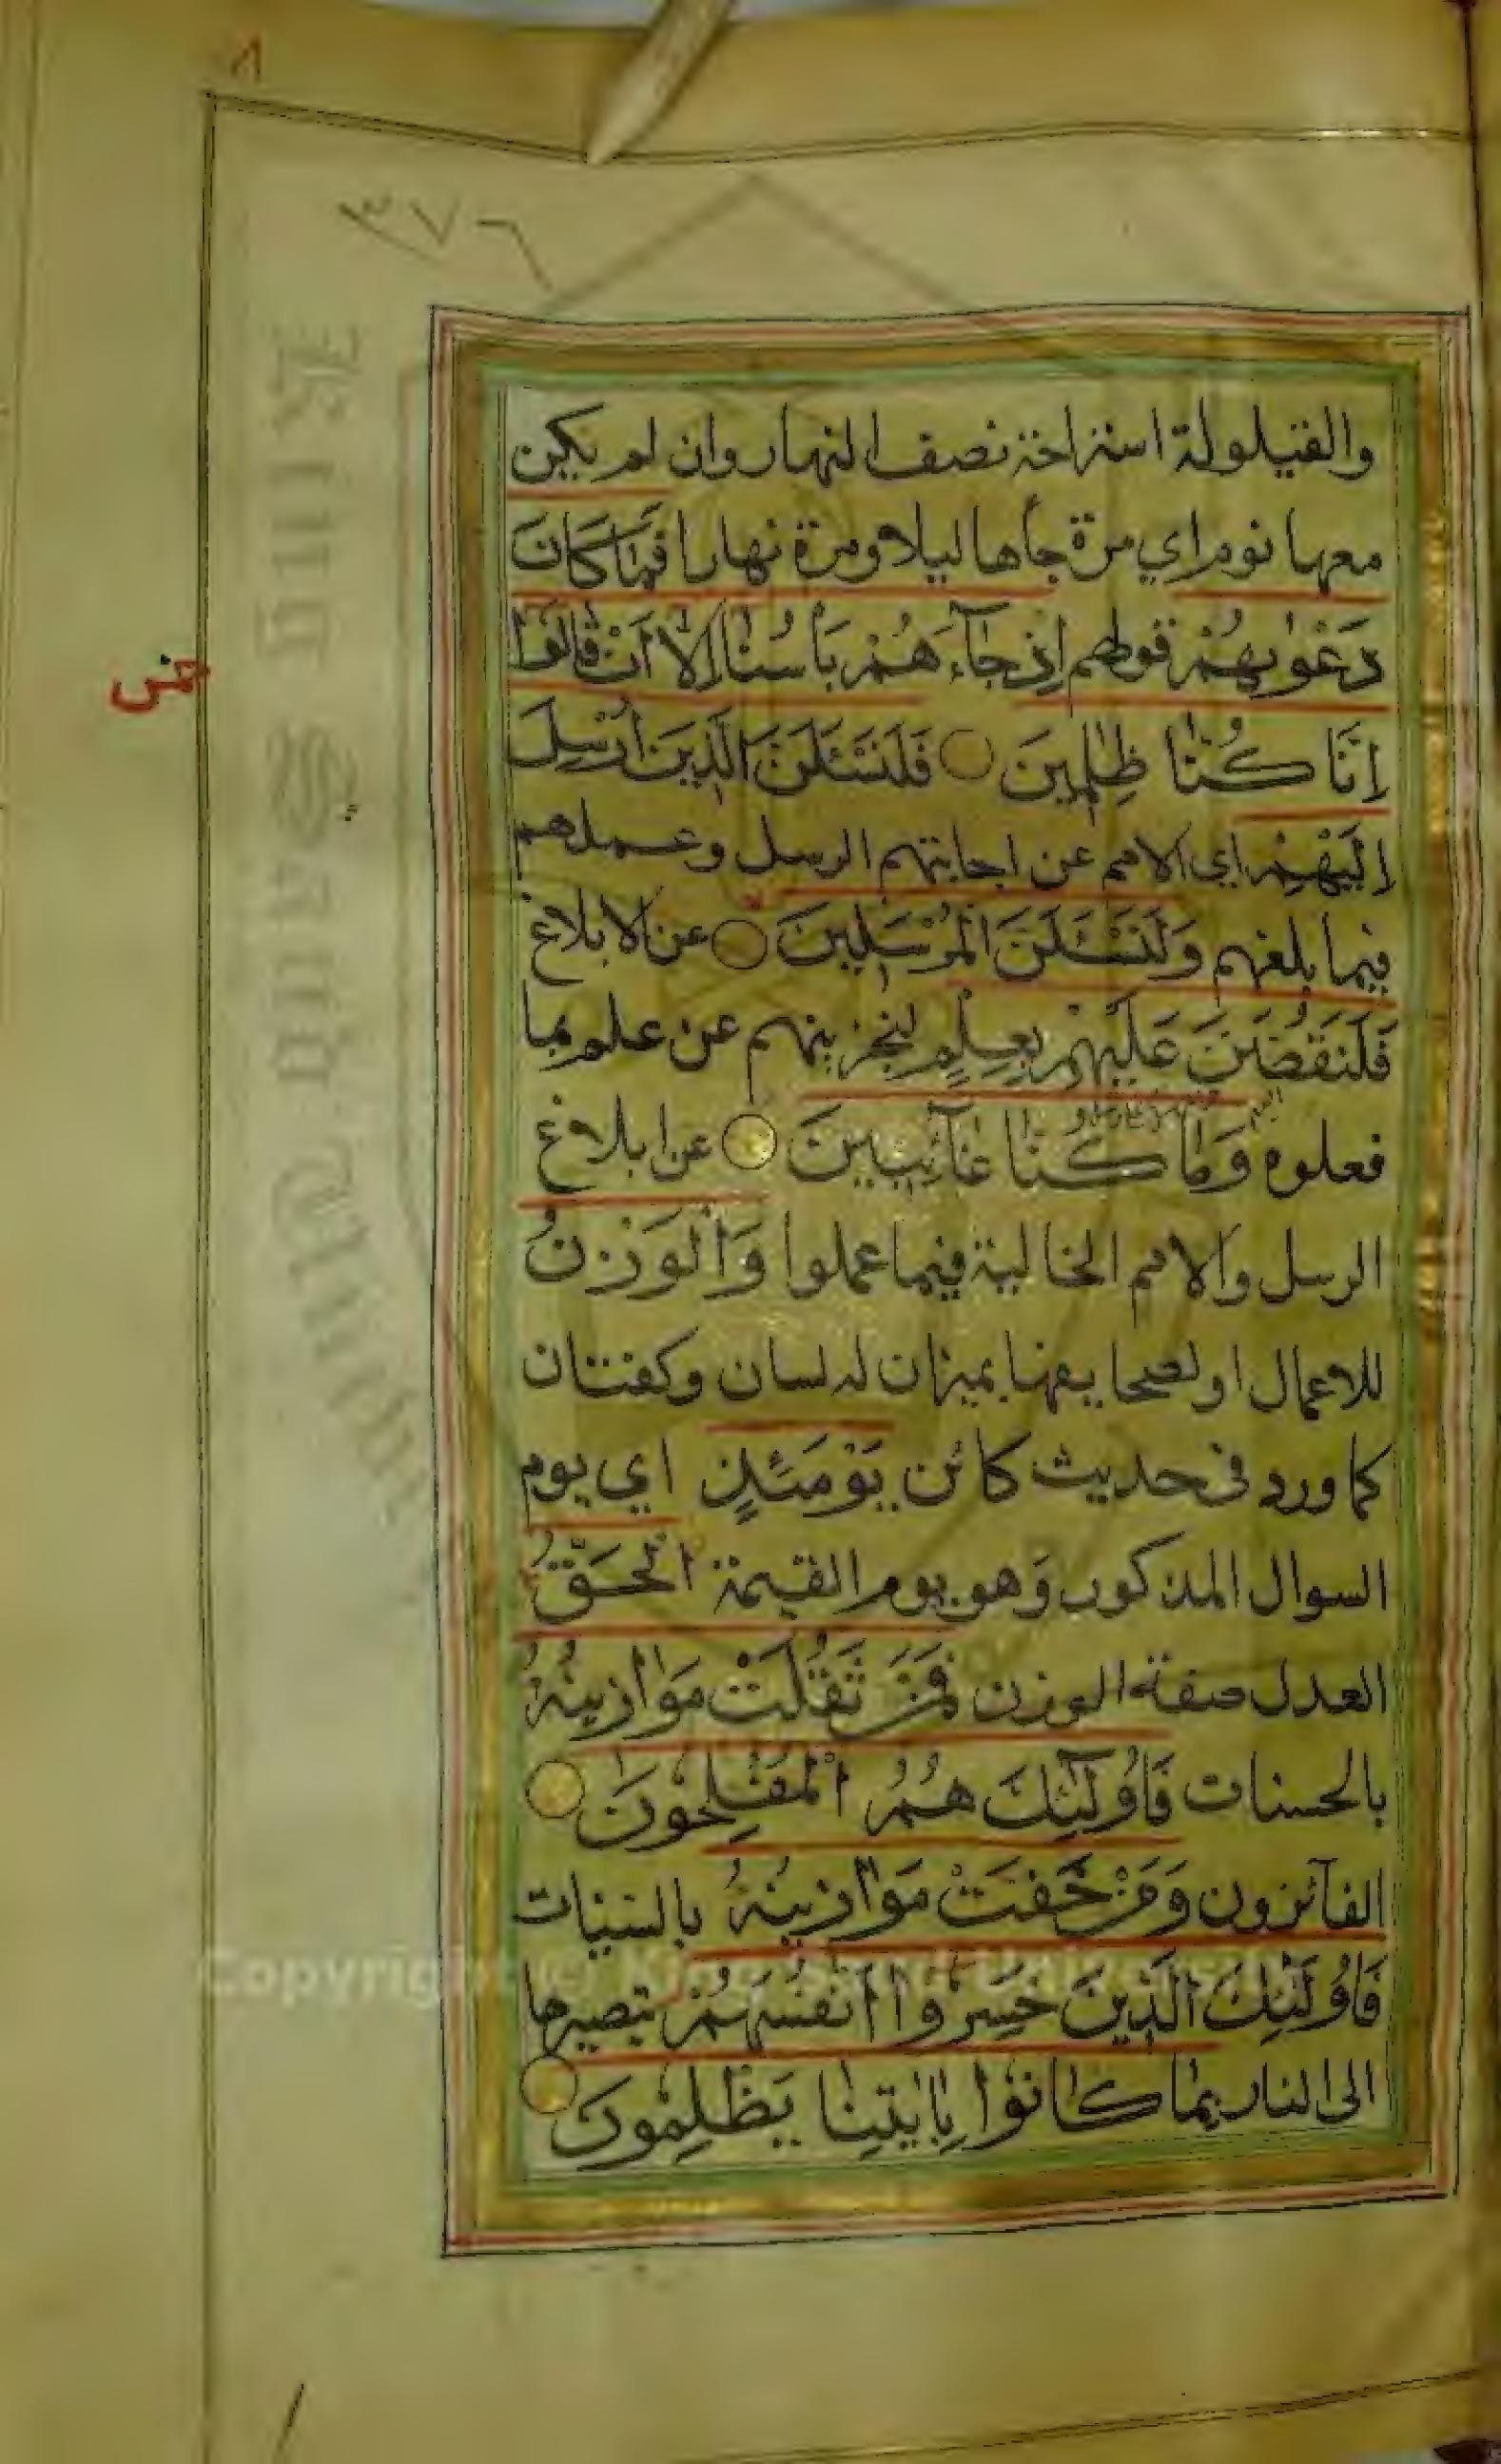 ٨
٣٧٦
والقيلولة استراحة نصف النهار وان لم يكن
معها نوم اي مرة جاها ليلا ومرة نهارا فَمَا كَانَ
دَعْوٰيهُمْ قولهم اِذْ جَآءَهُمْ بَأْسُنَا اِلَّا اَنْ قَالُوا
اِنَّا كُنَّا ظٰلِمِينَ فَلَنَسْئَلَنَّ الَّذِينَ اُرْسِلَ
اِلَيْهِمْ اي الامم عن اجابتهم الرسل وعملهم
فيما بلغهم وَلَنَسْئَلَنَّ الْمُرْسَلِينَ عن الابلاغ
فَلَنَقُصَّنَّ عَلَيْهِمْ بِعِلْمٍ لنخبرنهم عن علم بما
فعلوه وَمَا كُنَّا غَآئِبِينَ عن ابلاغ
الرسل والامم الخالية فيما عملوا وَالْوَزْنُ
للاعمال او لصحايفها بميزان له لسان وكفتان
كما ورد في حديث كائن يَوْمَئِذٍ اي يوم
السوال المذكور وَهو يوم القيمة الْحَقُّ
العدل صفة الوزن فَمَنْ ثَقُلَتْ مَوَازِينُهُ
بالحسنات فَاُولٰٓئِكَ هُمُ الْمُفْلِحُونَ
الفآئزون وَمَنْ خَفَّتْ مَوَازِينُهُ بالسيئات
فَاُولٰٓئِكَ الَّذِينَ خَسِرُوا اَنْفُسَهُمْ بتصييرها
الى النار بِمَا كَانُوا بِاٰيٰتِنَا يَظْلِمُونَ
Copyright © King Saud University